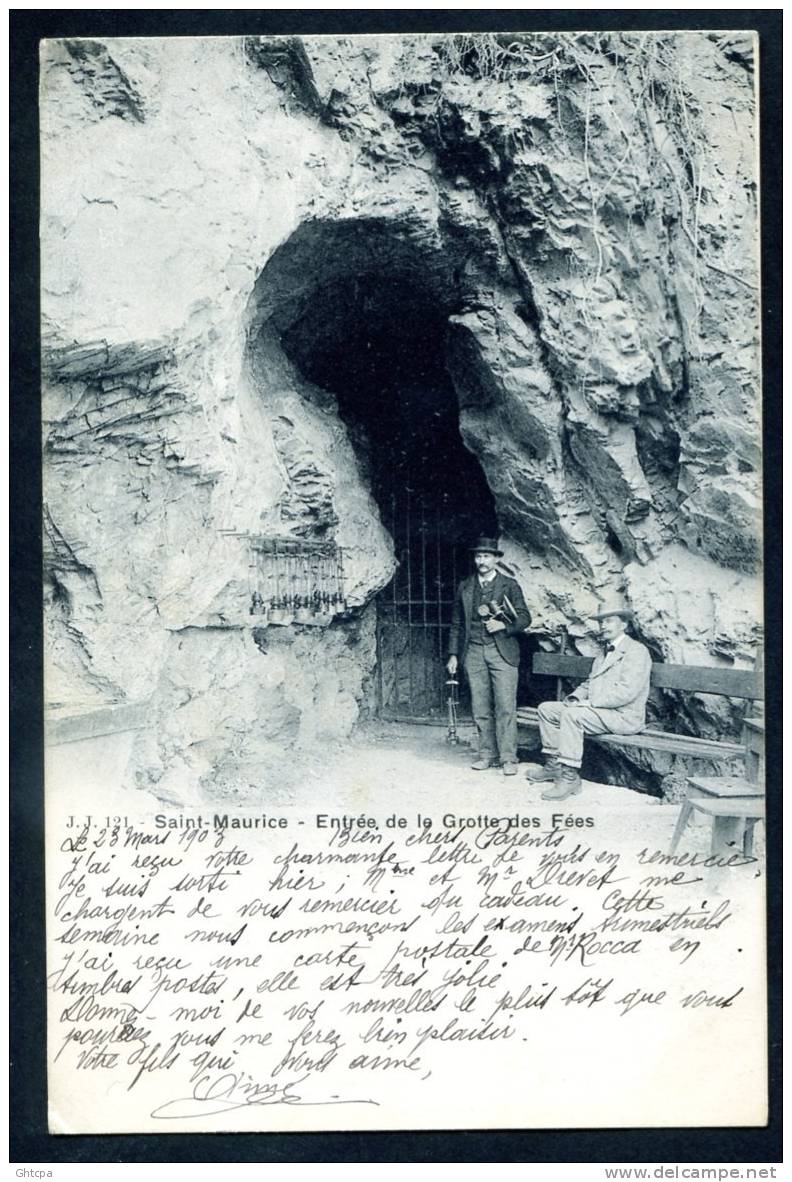 J. J. 121. - Saint-Maurice - Entrée de la Grotte des Fées
Le 23 Mars 1903 Bien chers Parents
J'ai reçu votre charmante lettre je vous en remercie
Je suis sorti hier ; Mme et Mr Drevet me
chargent de vous remercier du cadeau. Cette
semaine nous commençons les examens trimestriels
J'ai reçu une carte postale de Mr Rocca en
timbres postes, elle est très jolie
Donnez-moi de vos nouvelles le plus tôt que vous
pourrez vous me ferez bien plaisir.
Votre fils qui vous aime,
Aimé
Ghtcpa
http://www.delcampe.net